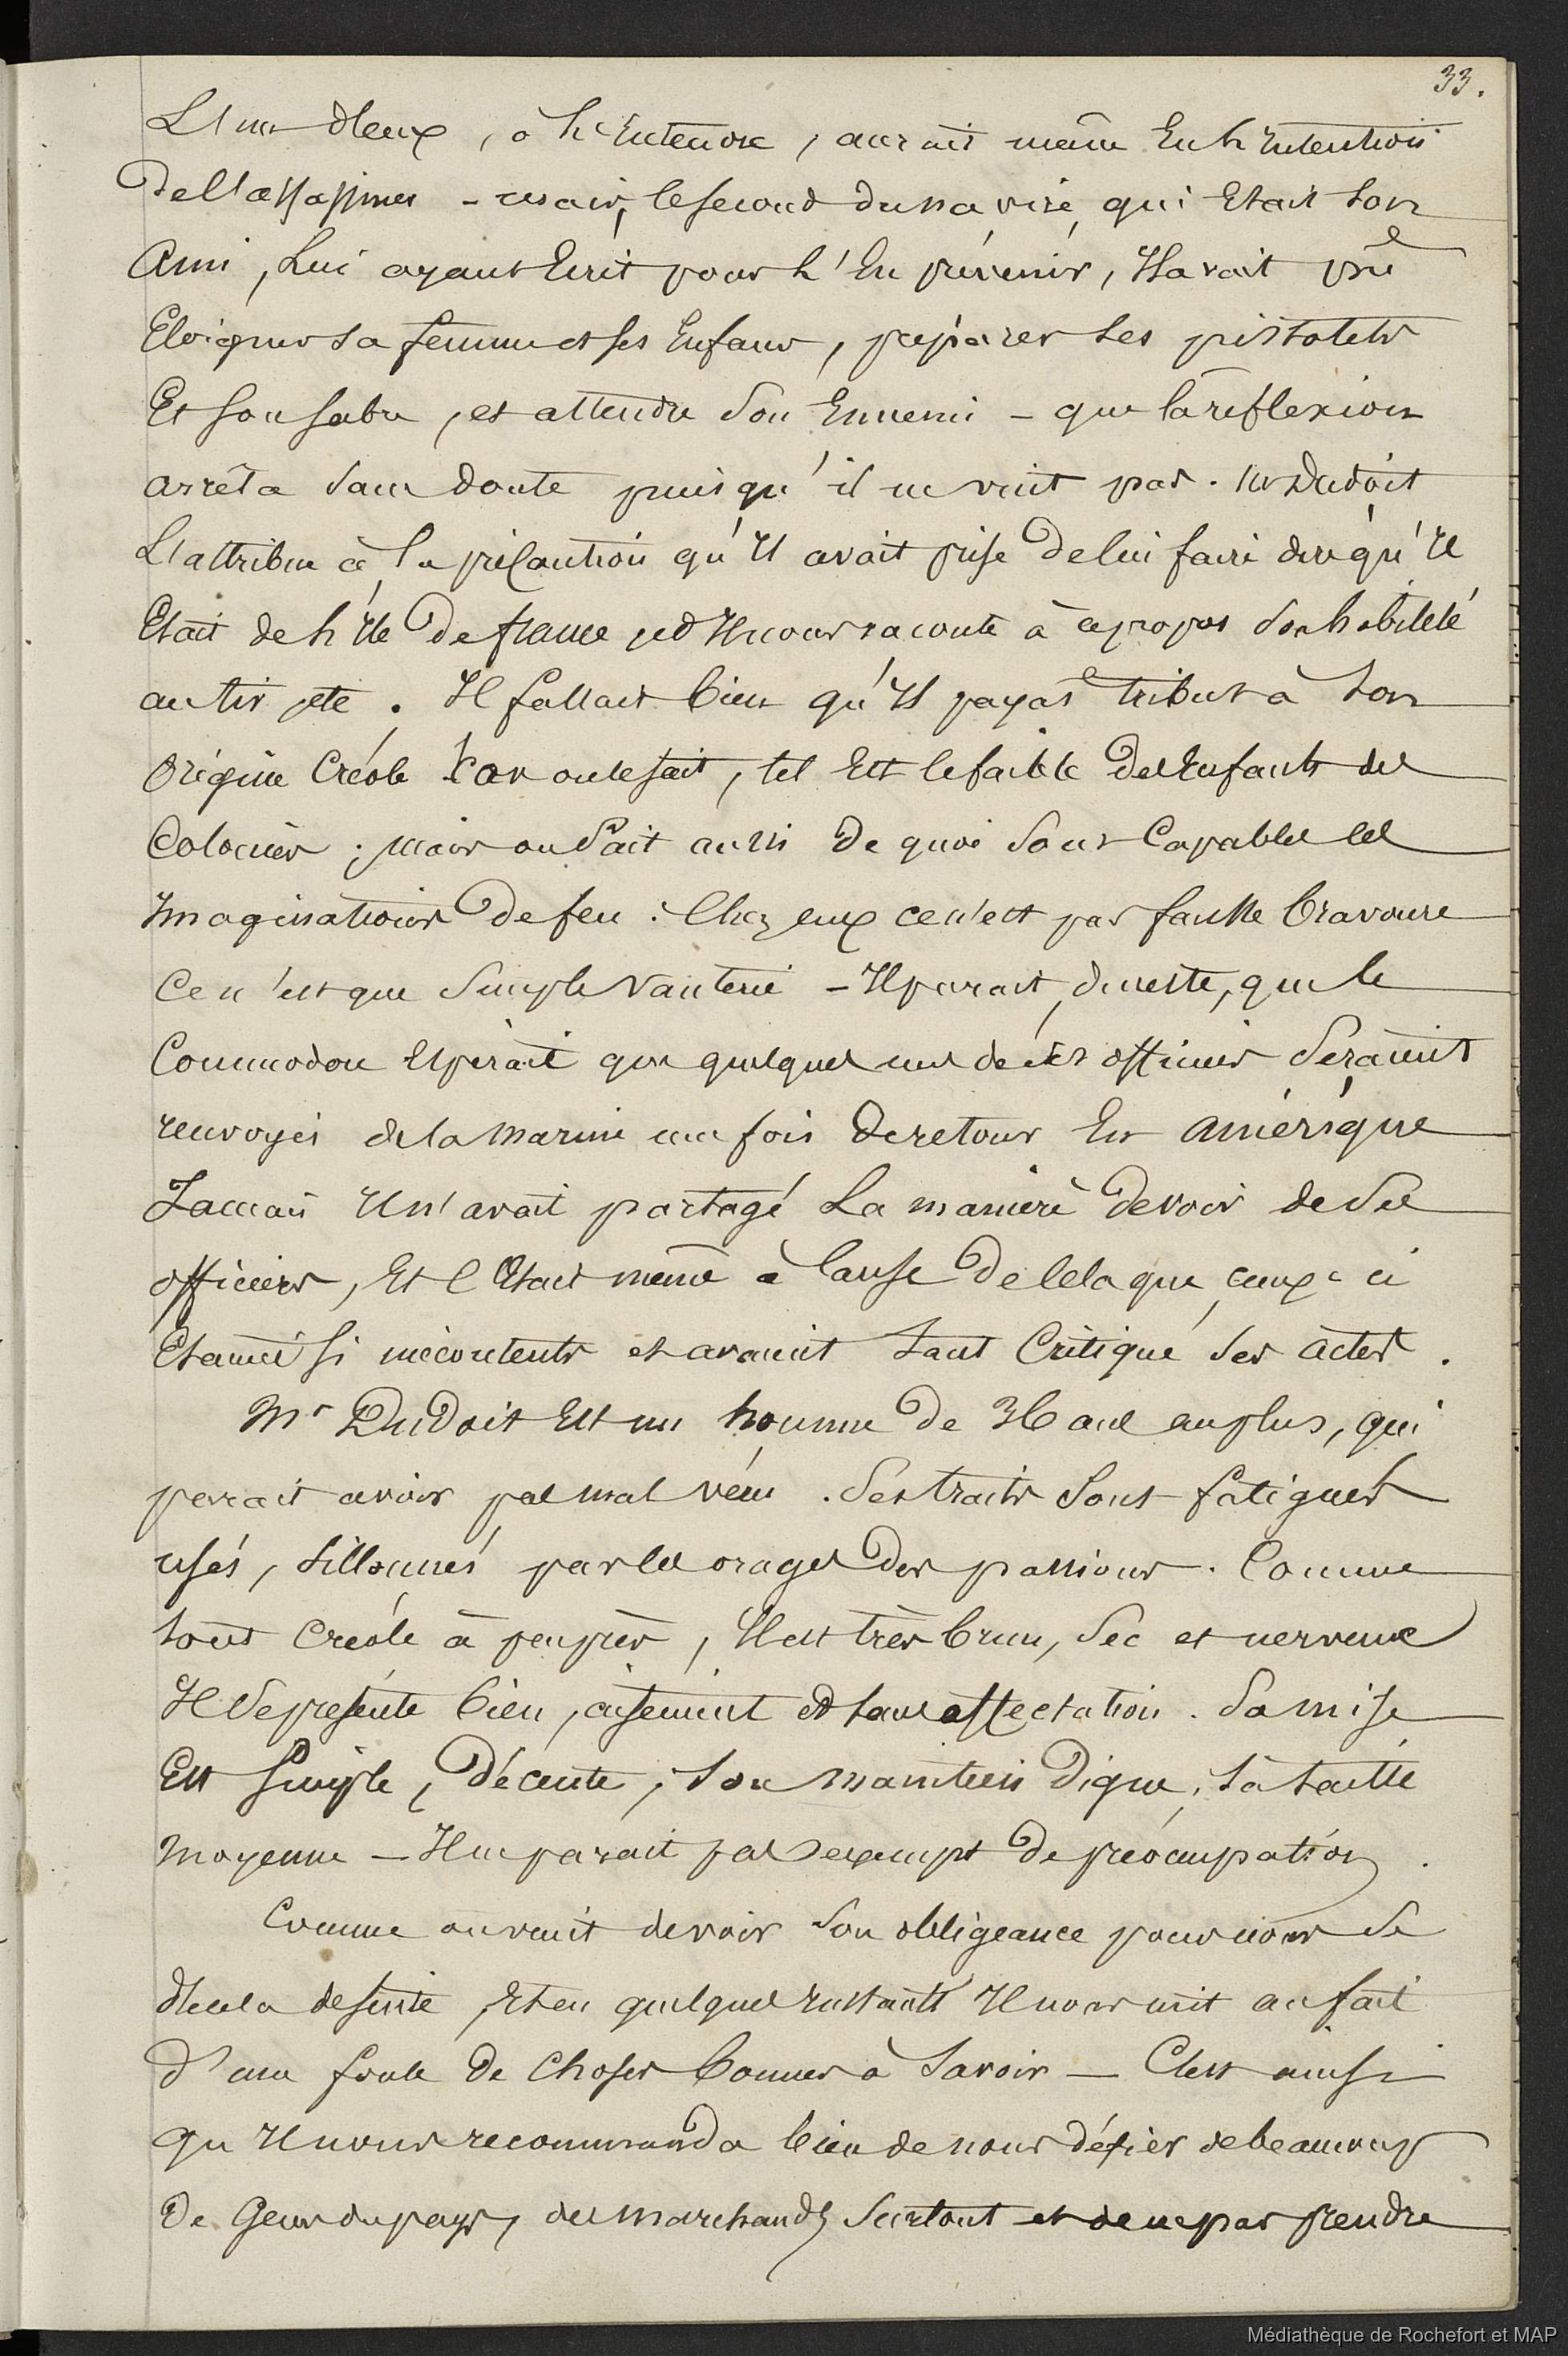 33.
L'un d'eux, à l'Entendre, aurait même Eu l'Intention
de l'assassiner - mais, le second du navire, qui Etait son
Ami, Lui ayant Ecrit pour l'En prévenir, Il avait pu
Eloigner sa femme et ses Enfans, préparer ses pistolets
Et son sabre, et attendre son Ennemi - que la réflexion
arrêta sans doute puisqu'il ne vint pas. Mr Dudoit
L'attribue à la précaution qu'Il avait prise de lui faire dire qu'Il
Etait de l'Ile de france et Il nous raconte à ce propos son habileté
au tir etc. Il fallait bien qu'Il payât tribut à son
Origine Créole Car on le sait, tel Est le faible des Enfants des
Colonies ; mais on Sait aussi de quoi sont Capables ces
Imaginations de feu : Chez eux ce n'est pas fausse bravoure
Ce n'est que simple vanterie - Il parait, du reste, que le
Commodore Espérait que quelques uns de ses officiers seraient
renvoyés de la Marine une fois de retour En Amérique
Jamais Il n'avait partagé La manière de voir de ses
officiers, Et C'Etait même à Cause de Cela que ceux-ci
Etaient si mécontents et avaient tant Critiqué ses actes.
Mr Dudoit Est un homme de 36 ans au plus, qui
parait avoir pas mal vécu. Ses traits sont fatigués
usés, sillonnés par les orages des passions. Comme
tout Créole à peu près, Il est très brun, sec et nerveux
Il se présente bien, aisément et sans affectation. Sa mise
Est simple, décente, son maintien digne, sa taille
moyenne - Il ne parait pas exempt de préocupation.
Comme on vient de voir son obligeance pour nous se
d'Eula desuite, Et en quelques Instants Il nous mit au fait
d'une foule de Choses bonnes à savoir - C'est ainsi
qu'Il nous recommanda bien de nous défier de beaucoup
de Gens du pays, des marchands surtout et de ne pas prendre
Médiathèque de Rochefort et MAP